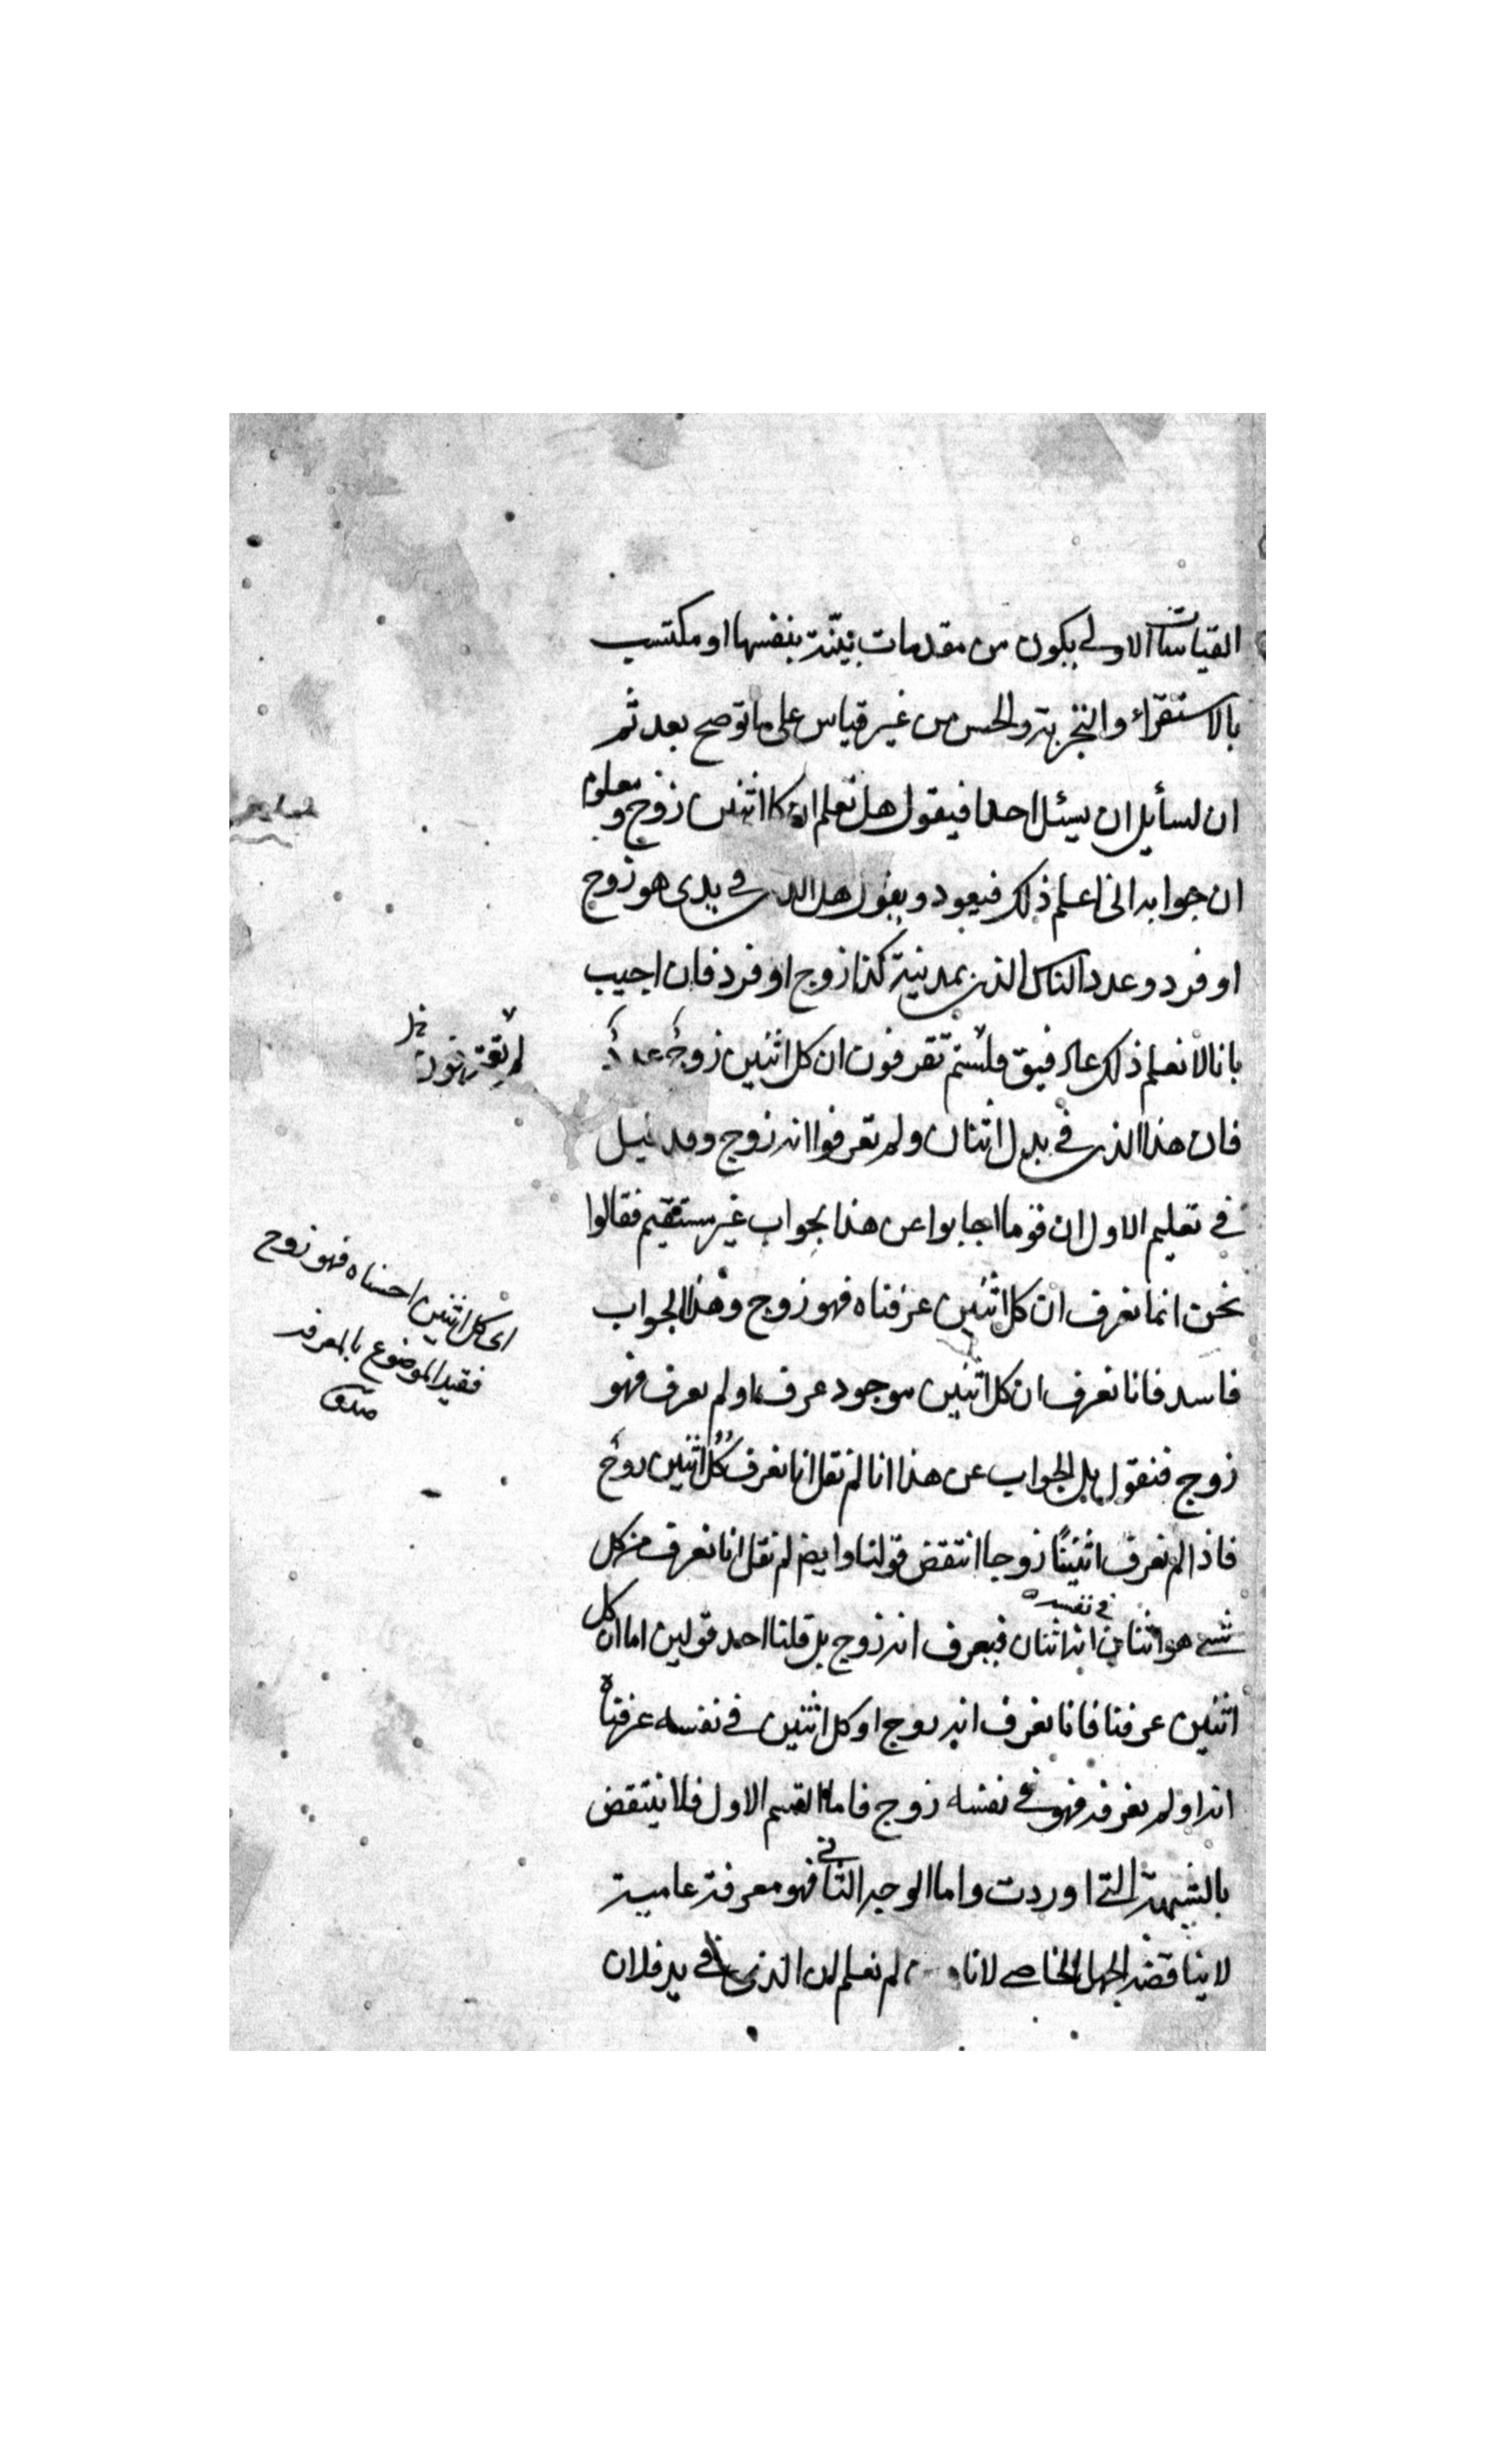 القياسات الاولى يكون من مقدمات بينة بنفسها او مكتسب
بالاستقراء والتجربة والحس من غير قياس على ما توضح بعد ثم
ان لسأيل ان يسئل احدا فيقول هل تعلم ان كل اثنين زوج ومعلوم
ان جوابه انى اعلم ذلك فيعود ويقول هل الذى فى يدى هو زوج
او فرد وعدد الناس الذين بمدينة كذا زوج او فرد فان اجيب
بانا لا نعلم ذلك عاد فيق فلستم تعرفون ان كل اثنين زوج عدد
فان هذا الذى فى يدى اثنان ولم تعرفوا انه زوج وقد قيل
فى تعليم الاول ان قوما اجابوا عن هذا بجواب غير مستقيم فقالوا
نحن انما نعرف ان كل اثنين عرفناه فهو زوج وهذا الجواب
فاسد فانا نعرف ان كل اثنين موجود عرف او لم يعرف فهو
زوج فنقول بل الجواب عن هذا انا لم نقل انا نعرف كل اثنين زوج
فاذا لم نعرف اثنينا زوجا انتقض قولنا وايضا لم نقل انا نعرف من كل
شىء هو اثنان فى نفسه انه اثنان فيعرف انه زوج بل قلنا احد قولين اما ان كل
اثنين عرفنا فانا نعرف انه زوج او كل اثنين فى نفسه عرفناه
انه او لم نعرفه فهو فى نفسه زوج فاما القسم الاول فلا ينتقض
بالشبهة التى اوردت واما الوجه الثانى فهو معرفة عامية
لا يناقضه الجهل الخاصى لانا لم نعلم ان الذى فى يد فلان
اى كل اثنين احسناه فهو زوج
فقيد الموضوع بالمعرفه